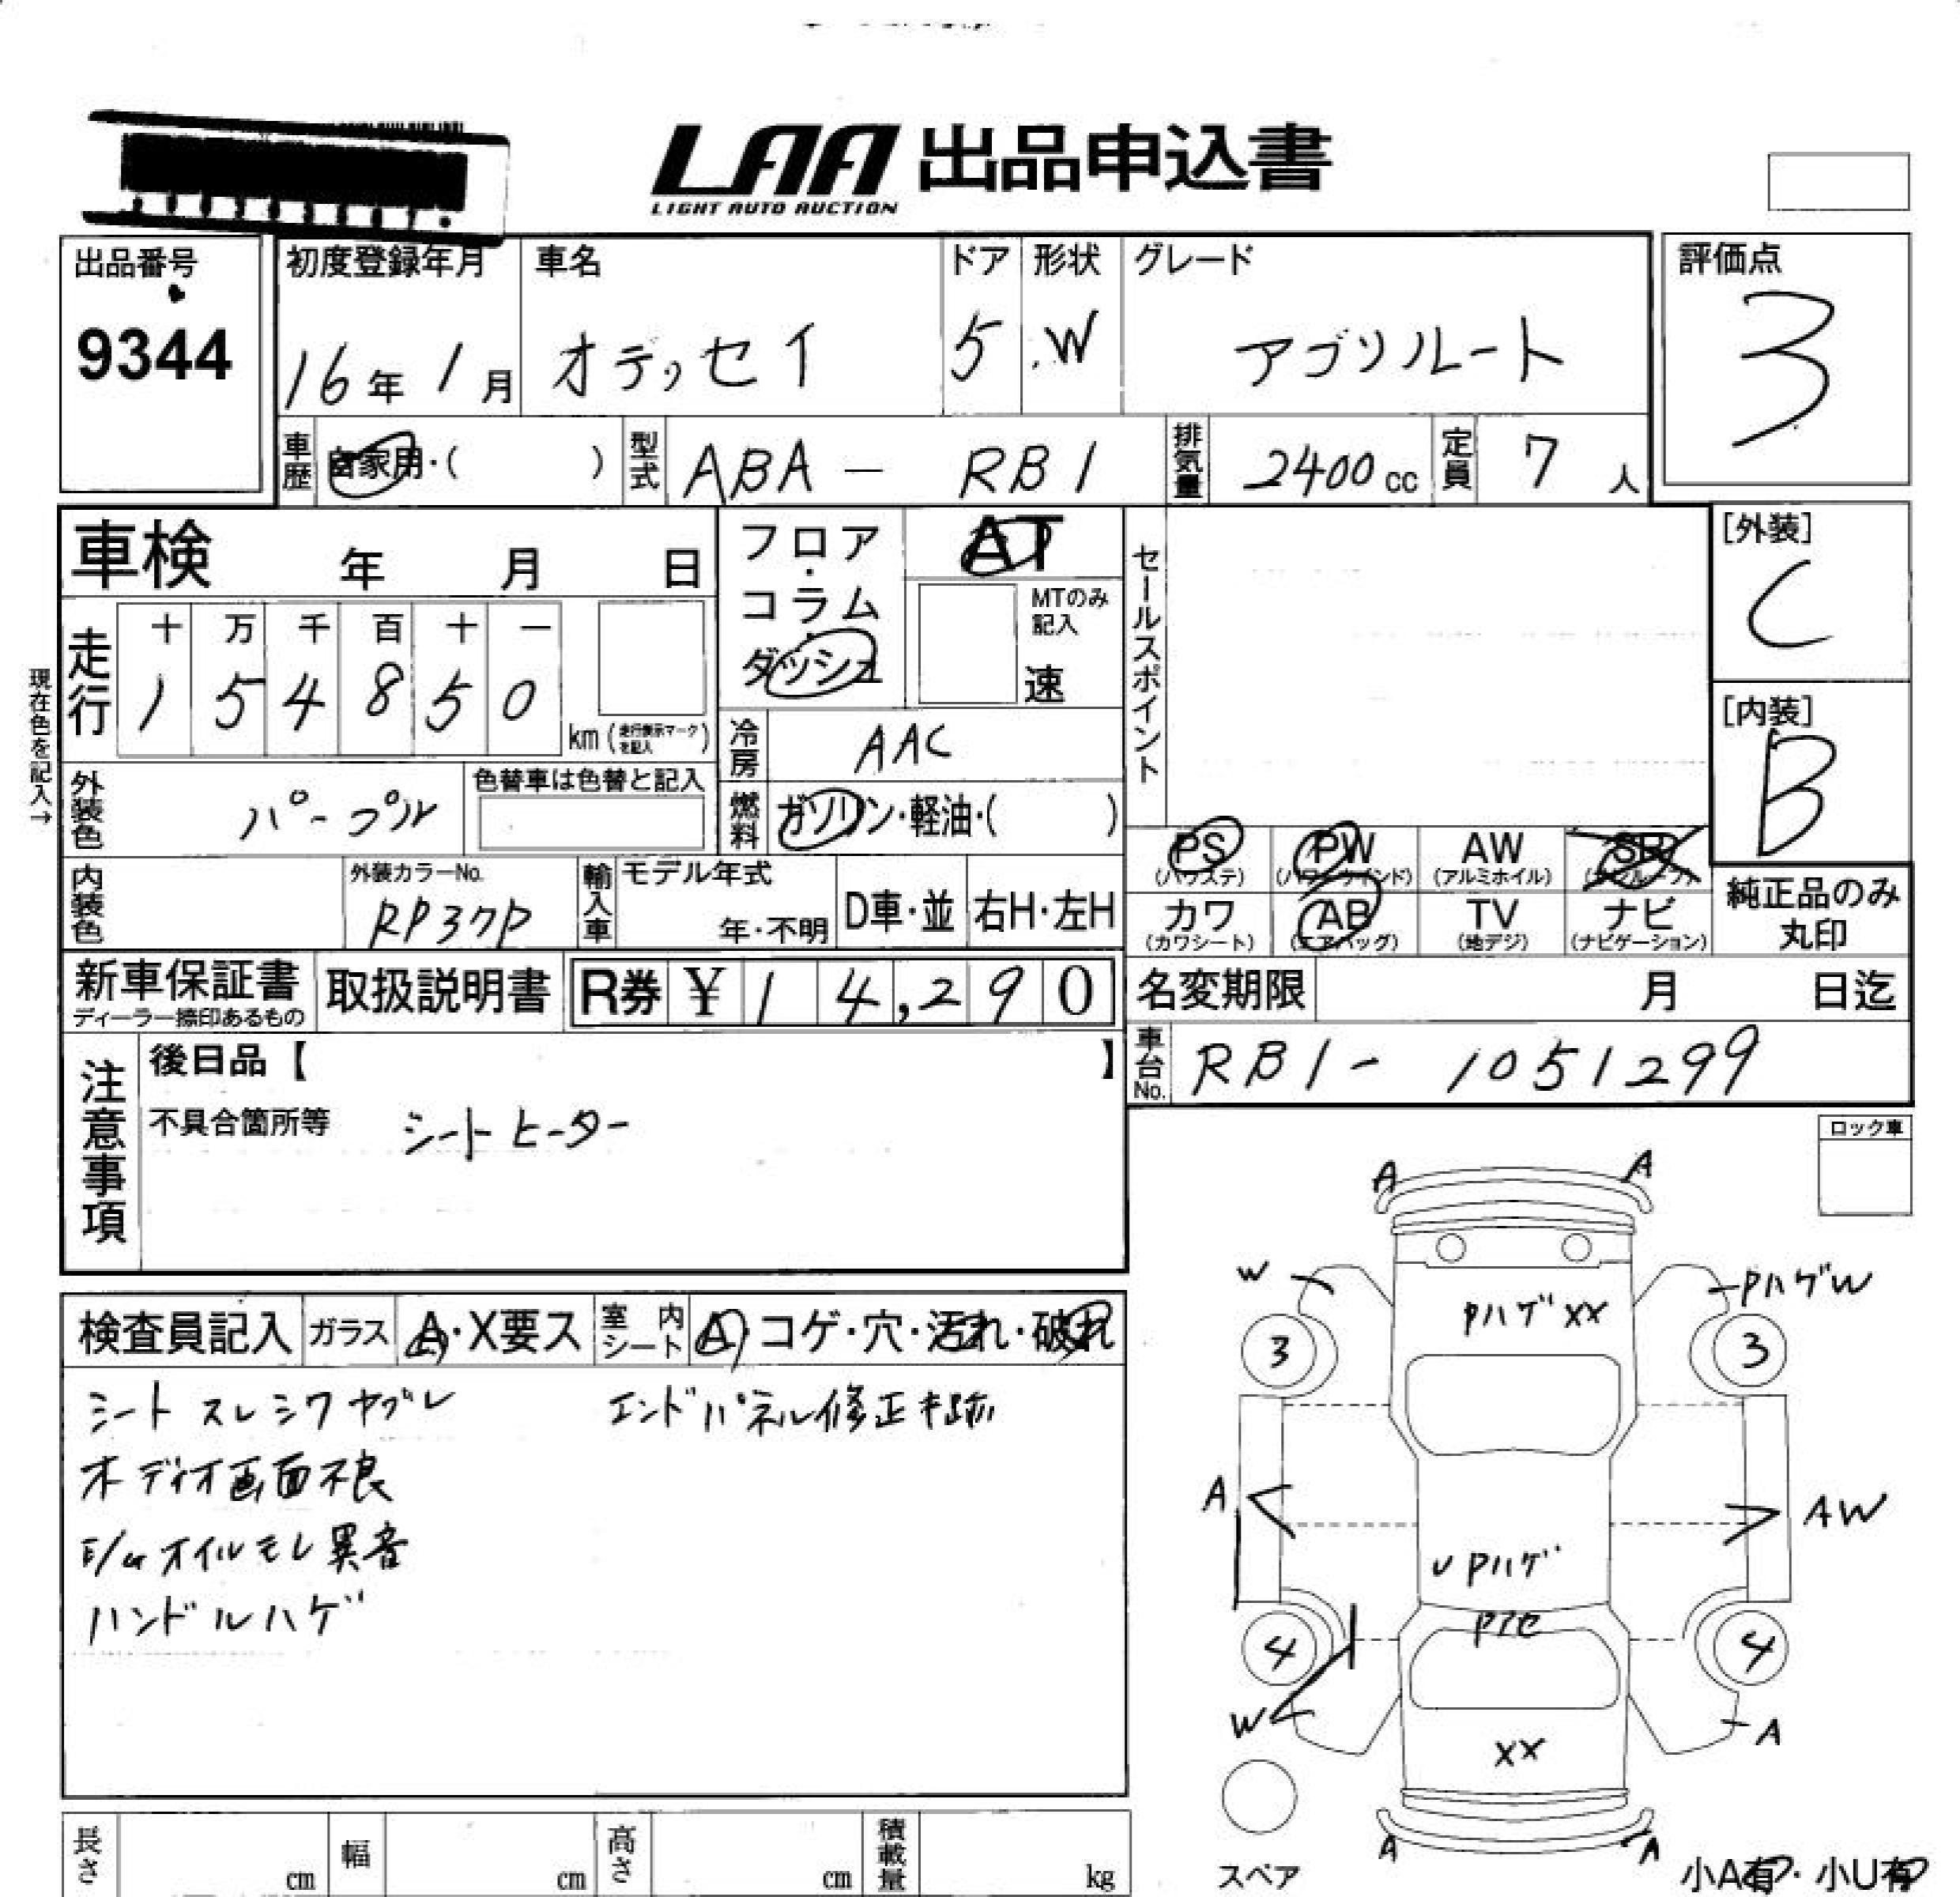 LAA 出品申込書
LIGHT AUTO AUCTION
出品番号
9344
初度登録年月
16年 1月
車名
オデッセイ
ドア
5
形状
W
グレード
アブソルート
評価点
3
車歴
自家用・( )
型式
ABA - RB1
排気量
2400cc
定員
7人
車検 年 月 日
フロア・コラム・ダッシュ
AT
MTのみ記入
速
セールスポイント
[外装]
C
[内装]
B
現在色を記入→
走行
十 万 千 百 十 一
1 5 4 8 5 0
km (走行表示マークを記入)
冷房
AAC
外装色
パープル
色替車は色替と記入
燃料
ガソリン・軽油・( )
PS (パワステ)
PW (パワーウインド)
AW (アルミホイル)
SR (サンルーフ)
カワ (カワシート)
AB (エアバッグ)
TV (地デジ)
ナビ (ナビゲーション)
純正品のみ丸印
内装色
外装カラーNo.
RP37P
輸入車
モデル年式
年・不明
D車・並
右H・左H
新車保証書
ディーラー捺印あるもの
取扱説明書
R券 ¥ 1 4,2 9 0
名変期限 月 日迄
車台No.
RB1- 1051299
注意事項
後日品【 】
不具合箇所等
シートヒーター
ロック車
検査員記入
ガラス
A・X要ス
室内シート
A・コゲ・穴・汚れ・破れ
シート スレ シワ ヤブレ
エンドパネル修正跡
オーディオ画面不良
E/G オイルモレ 異音
ハンドルハゲ
A A
W PハゲXX PハゲW
3 3
A AW
U Pハゲ
4 4
W A
XX
A A
スペア
小A有・小U有
長さ cm
幅 cm
高さ cm
積載量 kg